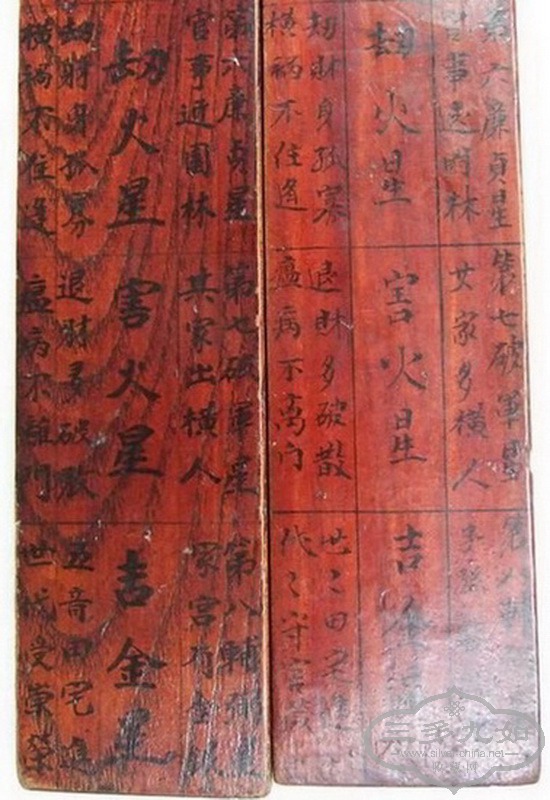 第六廉貞星
官事遠林
劫火星
劫財身孤寡
橫禍不住逢
第七破軍星
家多橫人
害火星
退財多破散
瘟病不离门
第八輔
吉
世〻田宅進
代〻守官
第六廉貞星
官事近園林
劫火星
劫財身孤寡
橫禍不住逢
第七破軍星
其家出橫人
害火星
退財多破散
瘟病不離門
第八輔弼星
宮有金
吉金星
五音田宅進
世代受榮
www.silverchina.net